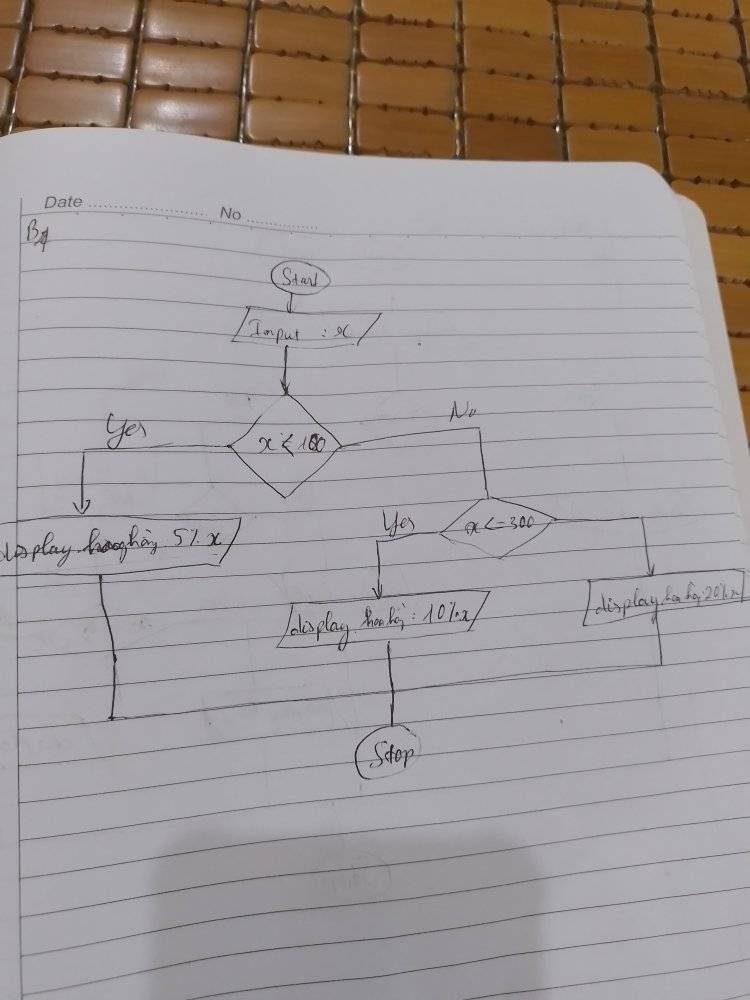 Date No
B4
Start
Input : x
x < 100
Yes
No
x <= 300
Yes
display hoa hồng 5% x
display hoa hồng : 10% x
display hoa hồng 20% x
Stop